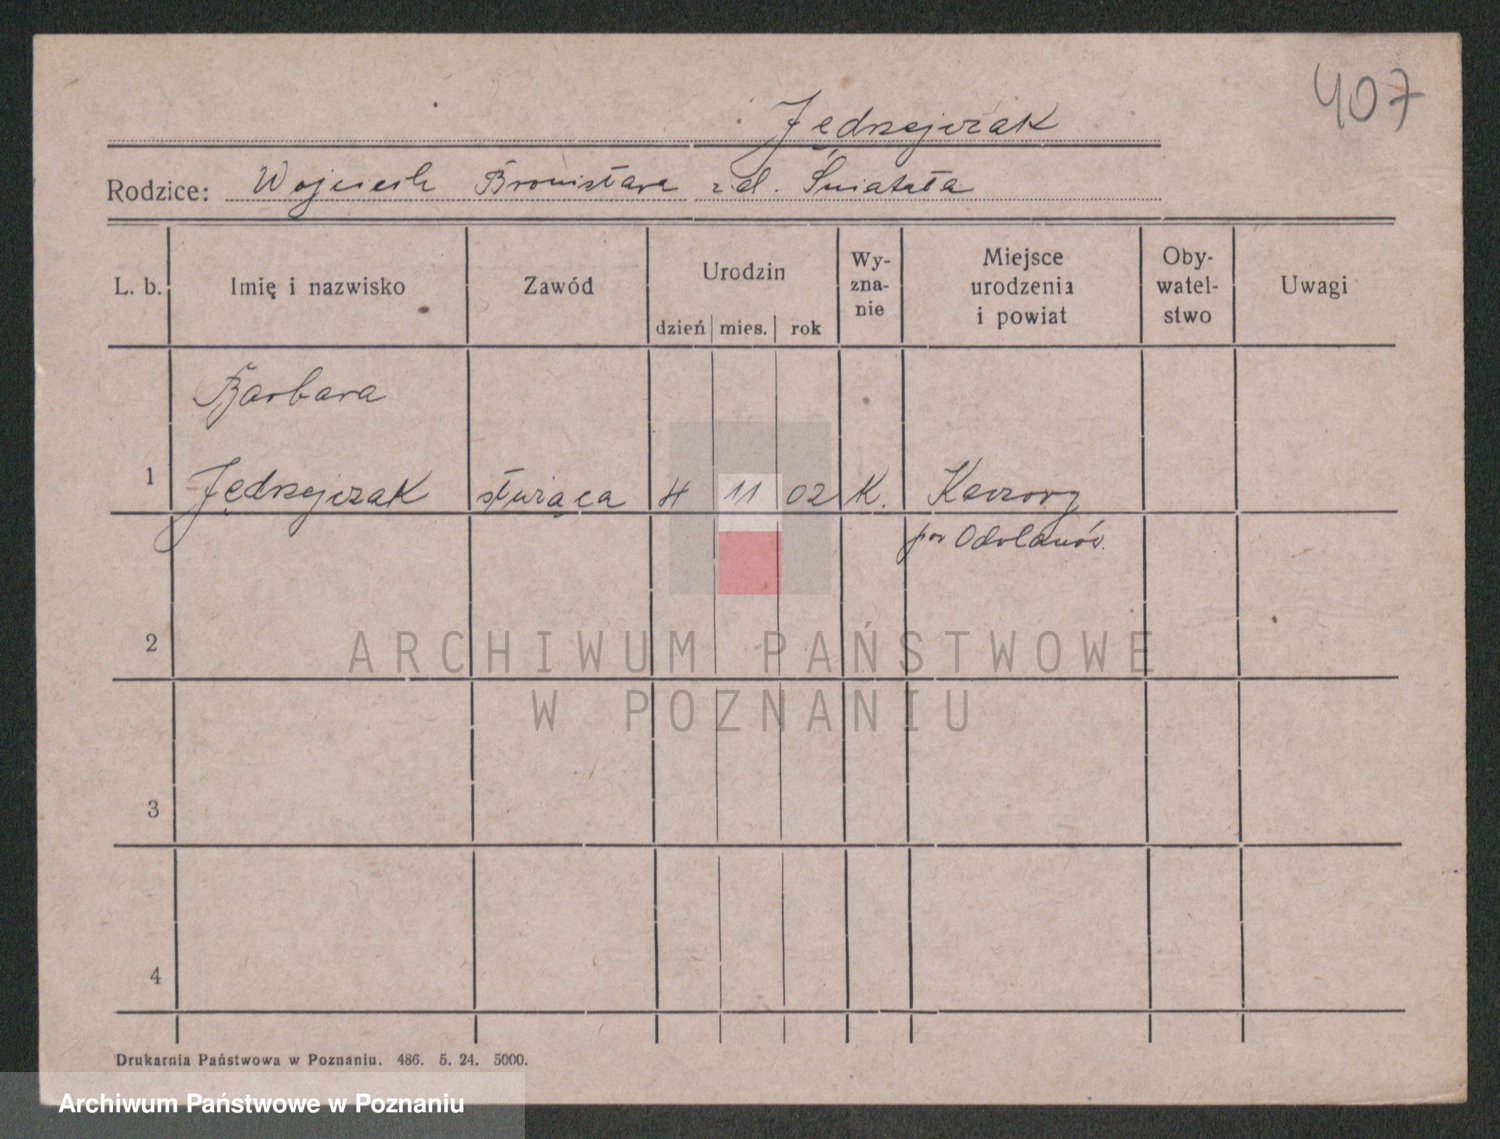 407
Jędrzejczak
Rodzice: Wojciech Bronisława z d. Światała
L. b. Imię i nazwisko Zawód Urodzin dzień mies. rok Wy-zna-nie Miejsce urodzenia i powiat Oby-watel-stwo Uwagi
Barbara
1 Jędrzejczak służąca 4 11 02 K.
pow Odolanów.
2
ARCHIWUM PAŃSTWOWE
W POZNANIU
3
4
Drukarnia Państwowa w Poznaniu. 486. 5. 24. 5000.
Archiwum Państwowe w Poznaniu